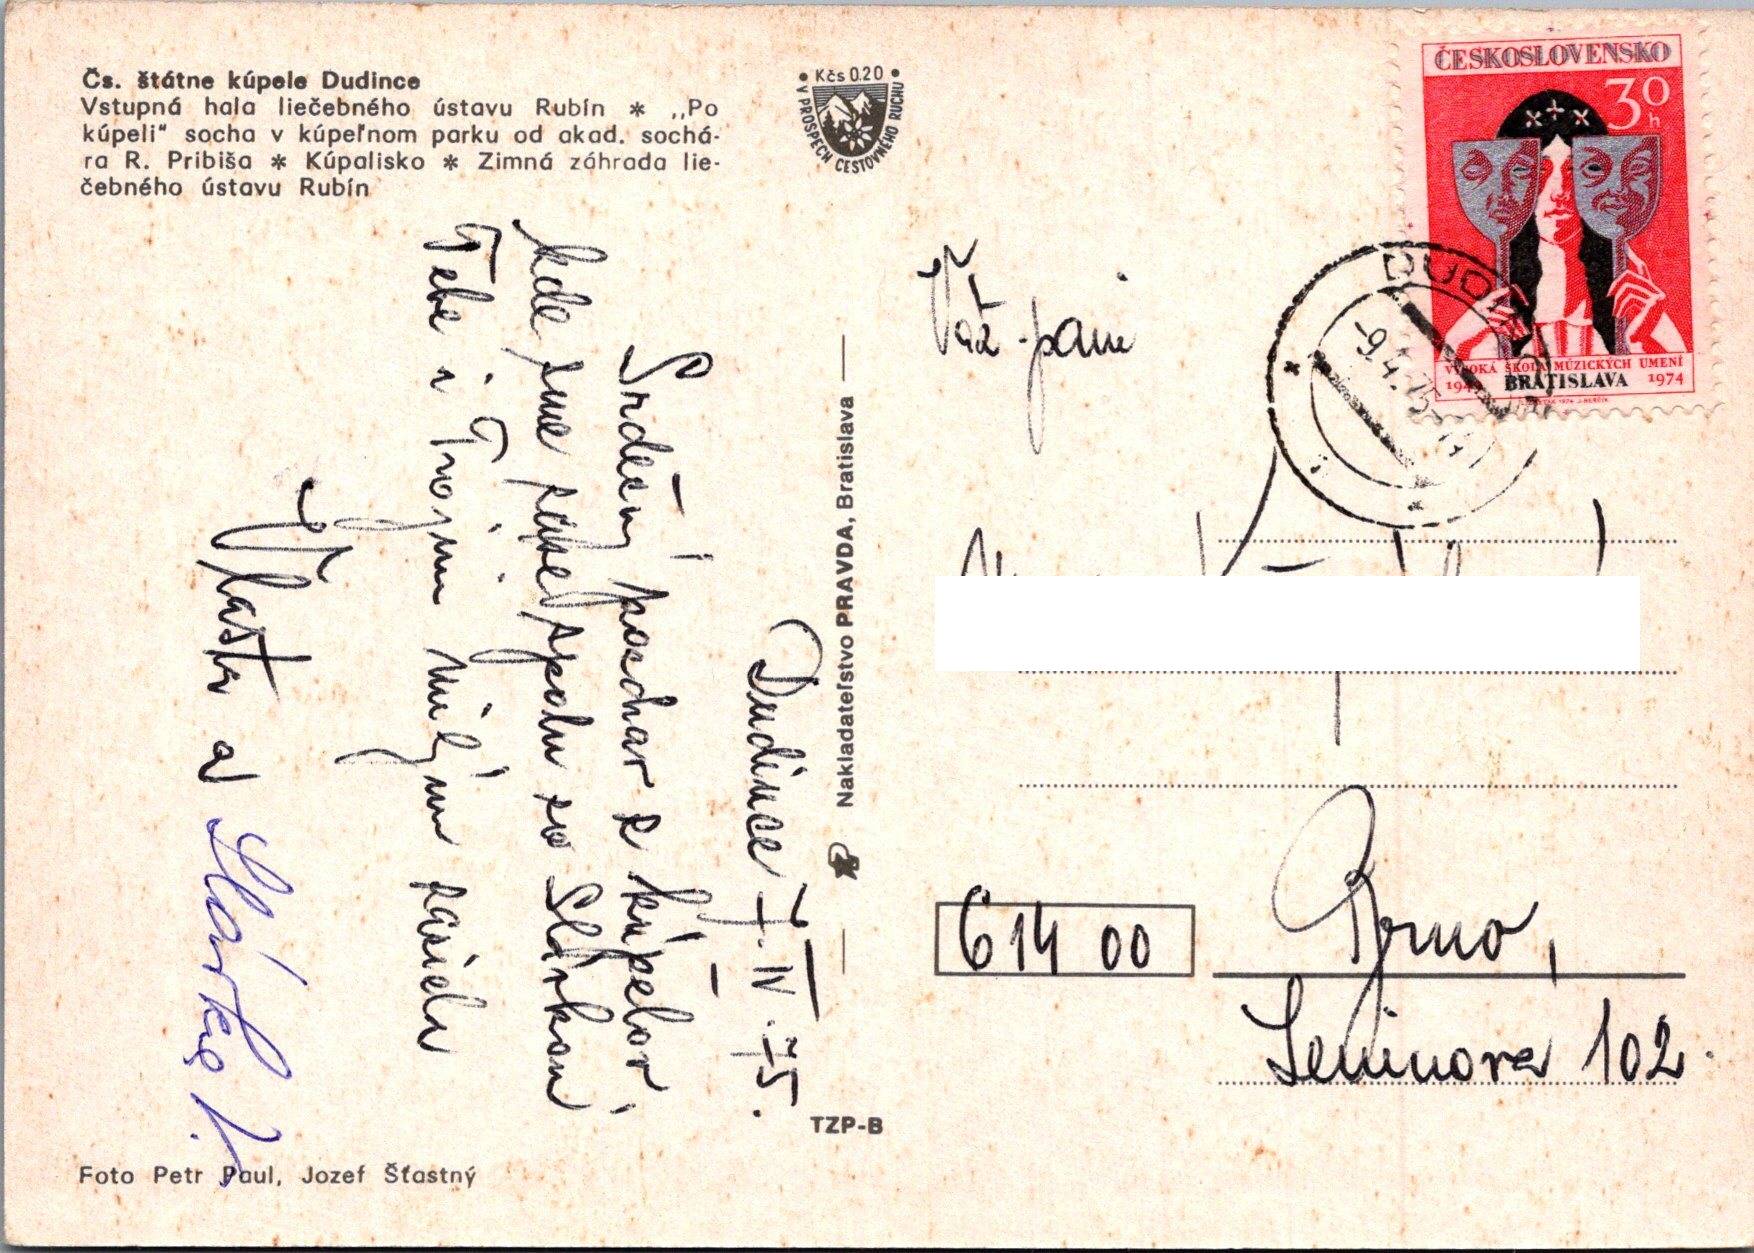 Čs. štátne kúpele Dudince
Vstupná hala liečebného ústavu Rubín * „Po
kúpeli“ socha v kúpeľnom parku od akad. sochá-
ra R. Pribiša * Kúpalisko * Zimná záhrada lie-
čebného ústavu Rubín
• Kčs 0.20 •
V PROSPECH CESTOVNÉHO RUCHU
ČESKOSLOVENSKO
30 h
VYSOKÁ ŠKOLA MÚZICKÝCH UMENÍ
1949 BRATISLAVA 1974
DUDINCE
-9.4.75-
Dudince 7. IV. 75.
Srdečný pozdrav z kúpelov
kde sme zase spolu so Slávkou
Tebe i Tvojim milým
Vlasta a
Slávka
Váž. pani
614 00
Brno,
Seninova 102.
Nakladateľstvo PRAVDA, Bratislava
TZP-B
Foto Petr Paul, Jozef Šťastný